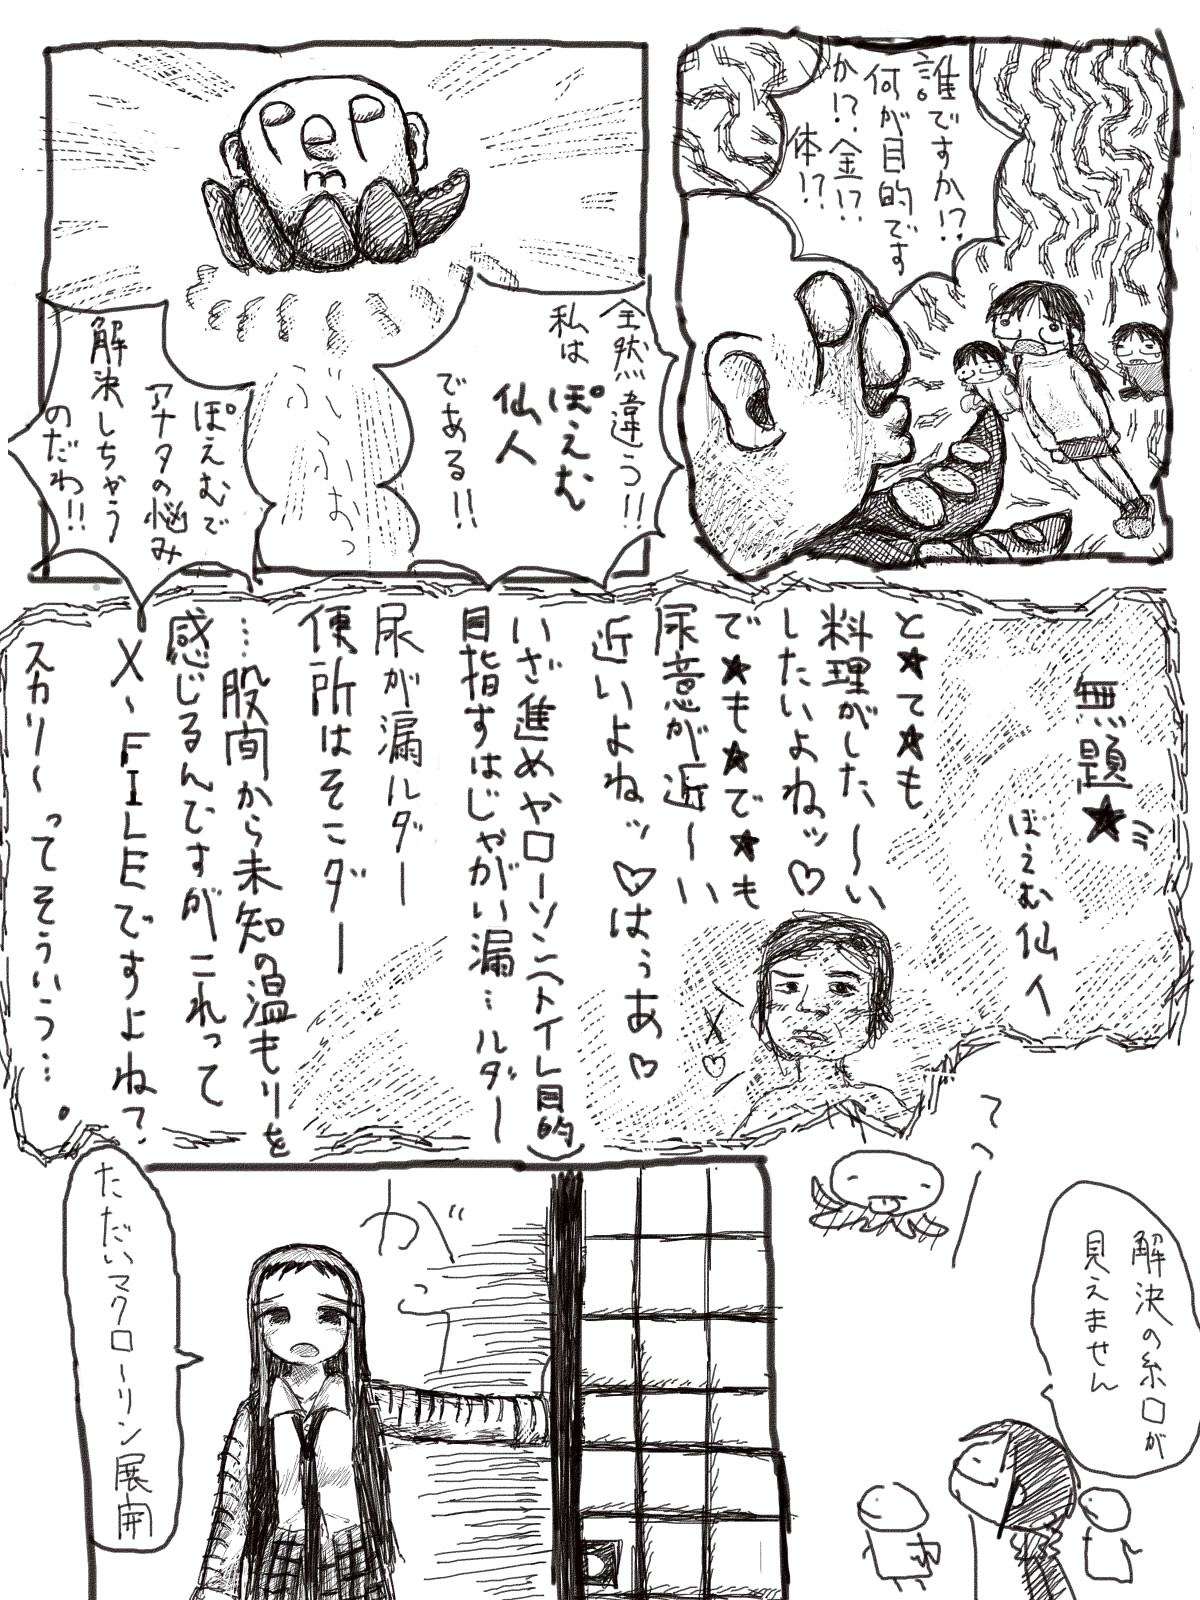 誰ですか!?
何が目的です
か!?金!?
体!?
全然違う!!
私は
ぽえむ
仙人
である!!
ぶ
ふぁっ
ぽえむで
アナタの悩み
解決しちゃう
のだわ!!
無題★
ぽえむ仙人
と★て★も
料理がした〜い
したいよねッ♡
で★も★で★も
尿意が近〜い
近いよねッ♡はぅあ♡
いざ進めやローソンへ(トイレ目的)
目指すはじゃがい漏…ルダー
尿が漏ルダー
便所はそこダー
…股間から未知の温もりを
感じるんですがこれって
X-FILEですよね?
スカリーってそういう…。
てっ
解決の糸口が
見えません
がらっ
ただいマクローリン展開